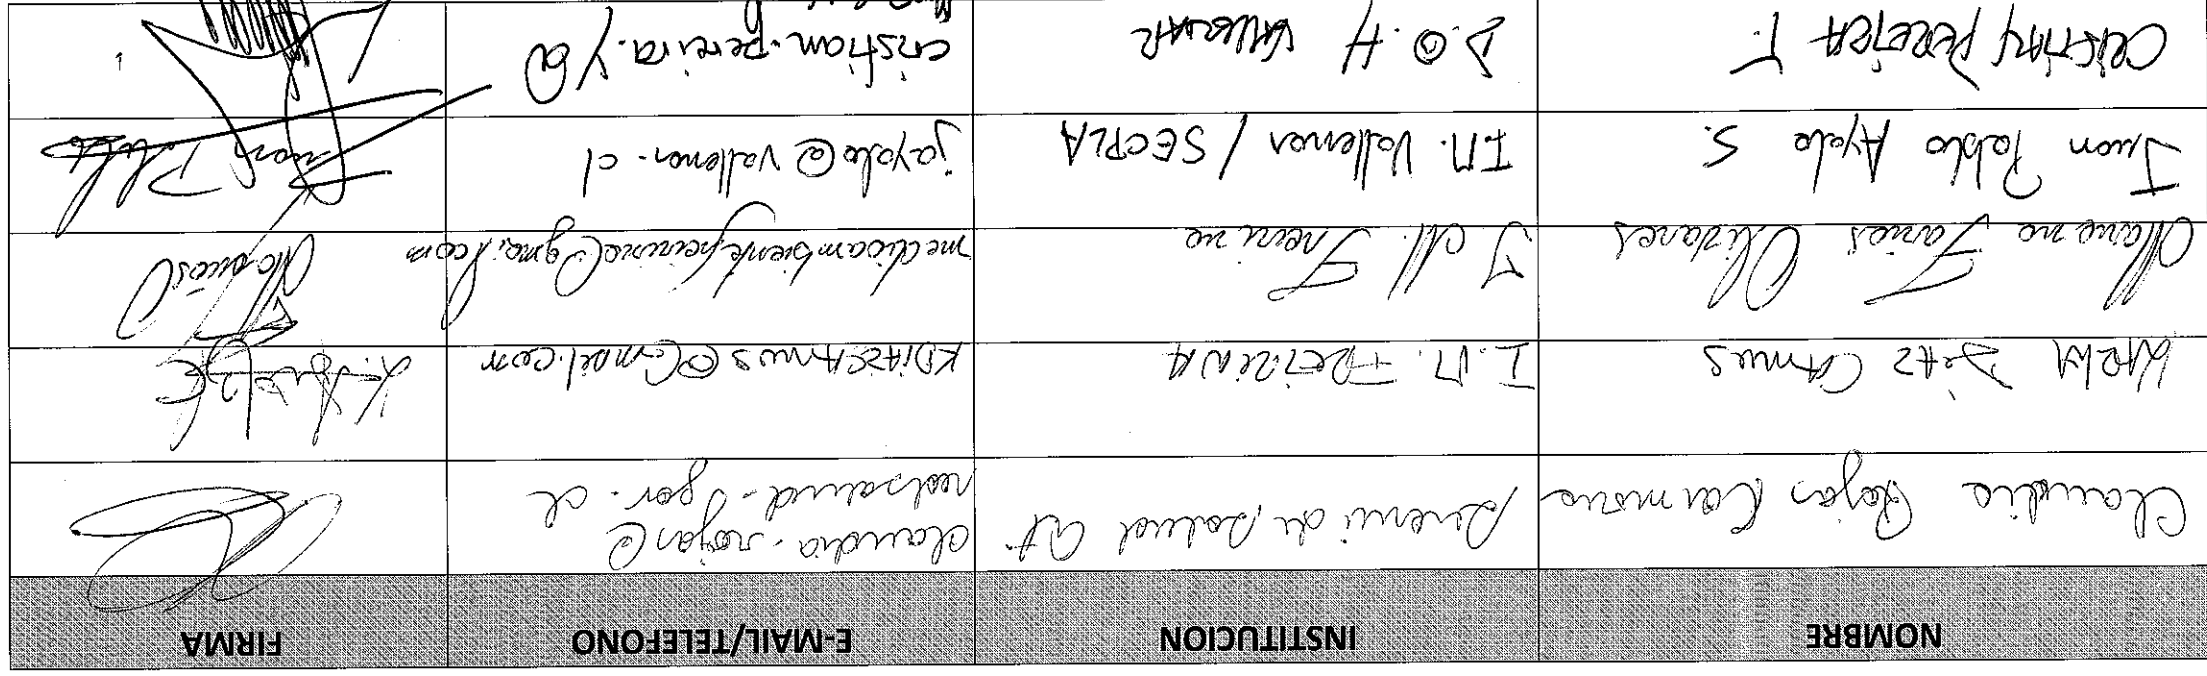 NOMBRE INSTITUCION E-MAIL/TELEFONO FIRMA
Claudia Rojas Carmona Seremi de Salud At. claudia.rojas@
redsalud.gov.cl
Karla Díaz Camus I.M. FREIRINA KDIAZCAMUS@Gmail.com
Farías Olivares I.M. Freirina medioambientefreirina@gmail.com
Juan Pablo Ayala S. I.M. Vallenar / SECPLA jayala@vallenar.cl
Juan Pablo
CRISTIAN PEREIRA T. D.O.H VALLENAR cristian.pereira.y@